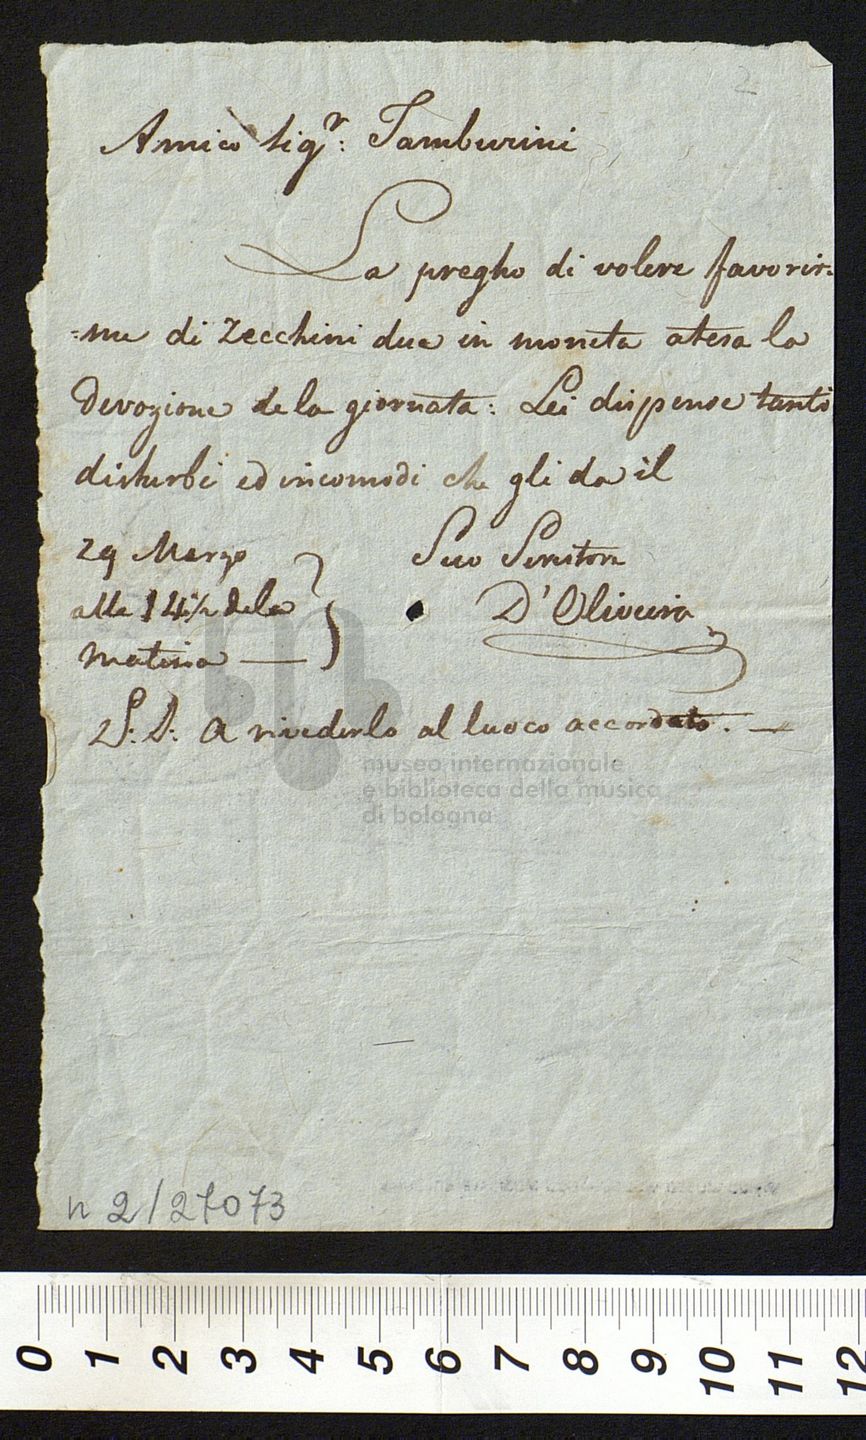 2
Amico Sigr: Tamburini
La pregho di volere favorir-
=me di Zecchini due in moneta atesa la
Devozione dela giornata: Lei dispense tanti
disturbi ed incomodi che gli da il
29 Marzo Suo Servitore
alle 14½ dela D'Oliveira
matina —
P.S. A rivederlo al luoco accordato. —
museo internazionale
e biblioteca della musica
di bologna
n 2/27073
0 1 2 3 4 5 6 7 8 9 10 11 12